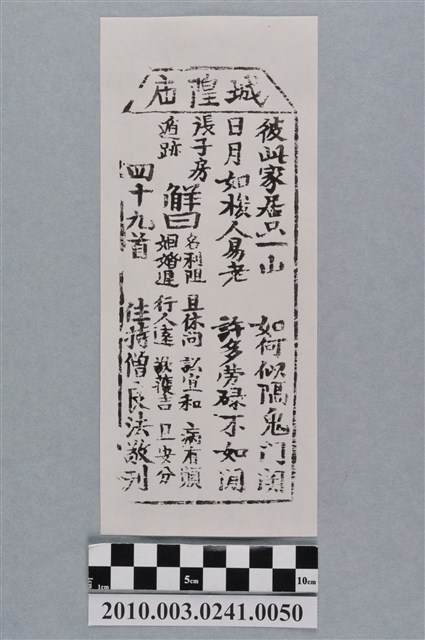 城隍庙
彼此家居只一山 如何似隔鬼门關
日月如梭人易老 許多勞碌不如閒
張子房
遁跡
解曰
名利阻 且休问 訟宜和 病有
姻婚遲 行人遠 吉 且安分
四十九首 住持僧良法敬刊
1cm 5cm 10cm
2010.003.0241.0050